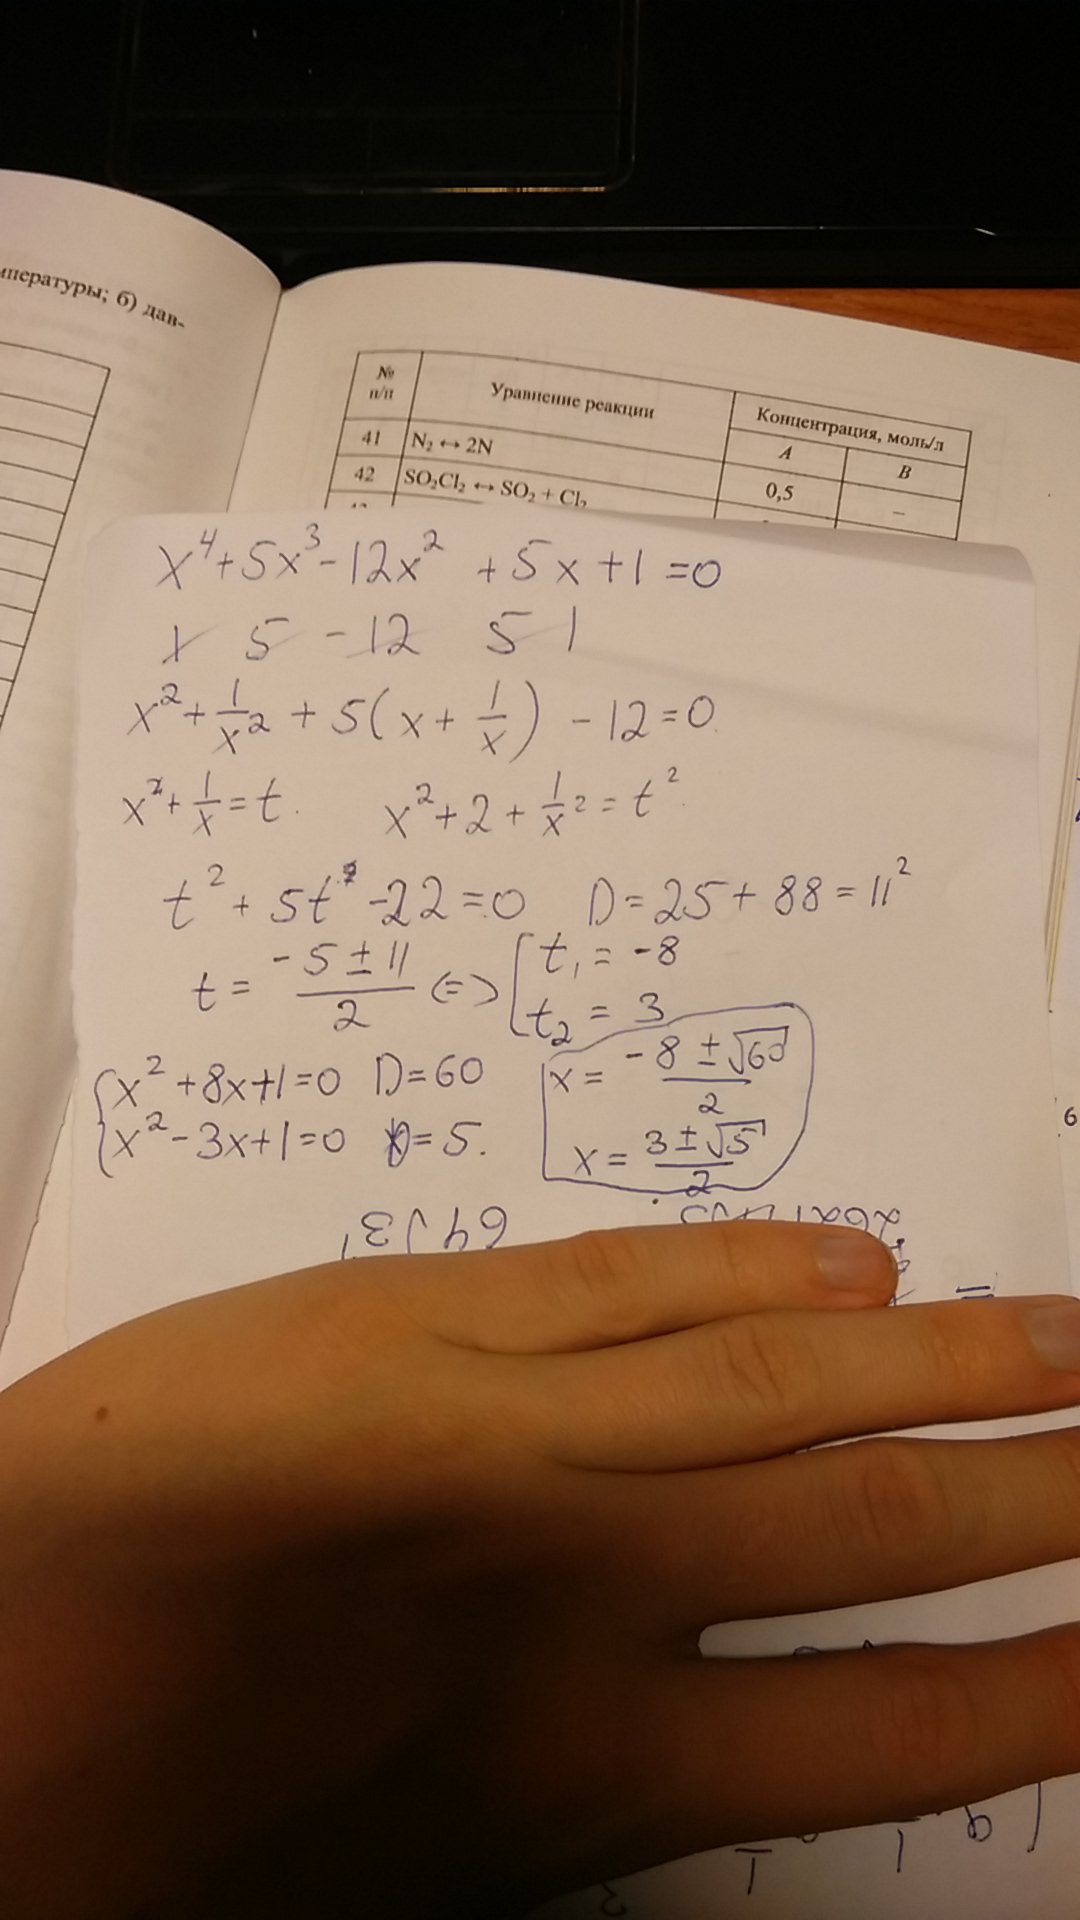 мпературы; б) дав-
№ п/п Уравнение реакции Концентрация, моль/л
A B
41 N₂ ↔ 2N 0,5 –
42 SO₂Cl₂ ↔ SO₂ + Cl₂
x⁴+5x³-12x² +5x+1=0
x 5 -12 5 1
x²+1/x²+5(x+1/x)-12=0.
x²+1/x=t. x²+2+1/x²=t²
t²+5t-22=0 D=25+88=11²
t=(-5±11)/2 (=> [t₁=-8
t₂=3
{x²+8x+1=0 D=60 x=(-8±√60)/2
x²-3x+1=0 D=5. x=(3±√5)/2
64√3
6